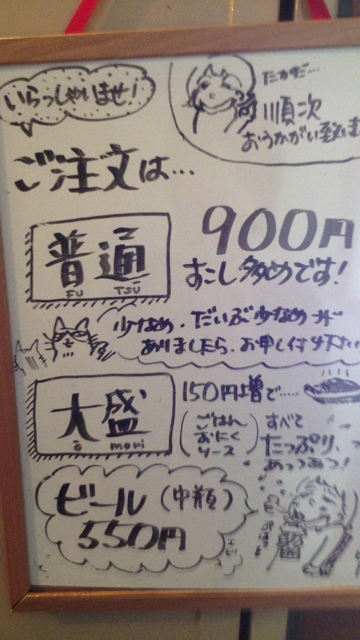 いらっしゃいませ!
ただだ…
順次
おうかがい致しま
ご注文は…
普通
FU TSU
900円
すこし多めです!
少なめ・だいぶ少なめ等
ありましたら、お申し付け下さい
大盛
ō mori
150円増で……
(ごはん
おにく
ソース)
すべて
たっぷり、
あっつあつ!
ビール(中瓶)
550円